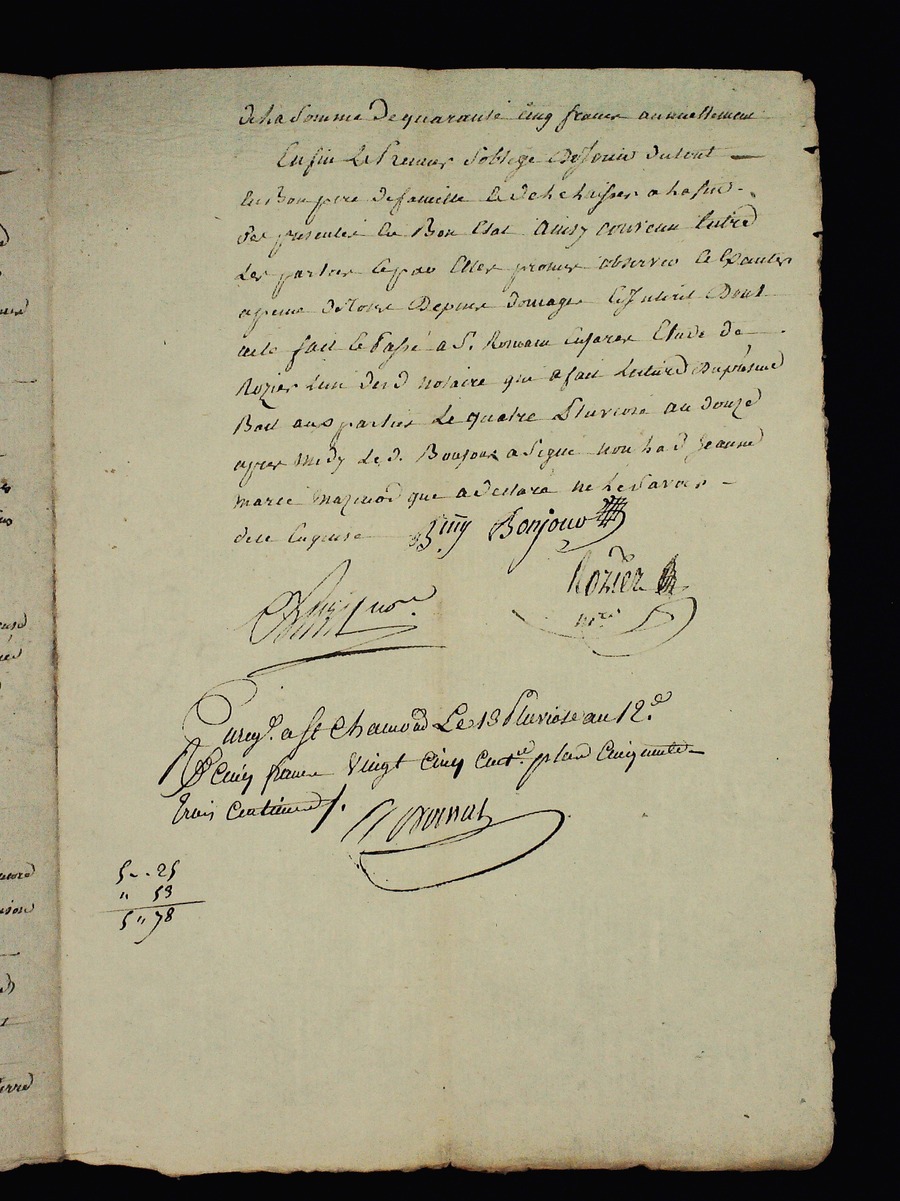 de la Somme de quarante cinq francs annuellement
Enfin Le Preneur s'oblige de jouir du tout
en Bon pere de famille et de le laisser a la fin
des presentes en Bon Etat Ainsy convenu Entre
Les parties
a peine de tous Depens domages & Interets Dont
acte fait & Passé a St. Romain en Jarez Etude de
Rozier L'un des d notaire qui a fait Lecture du présent
Bail aux parties Le quatre Pluviose an douze
apres midy Le d. Bonjour a Signé non la d Jeanne
marie mazenod que a declaré ne Le Savoir
de ce Enquise Bonjour
Rozier
nore.
Enregé. a St Chamond Le 13 Pluviose an 12e.
R Cinq francs Vingt Cinq cent. plus Cinquante
trois Centimes
5 -- 25
" 53
5 " 78